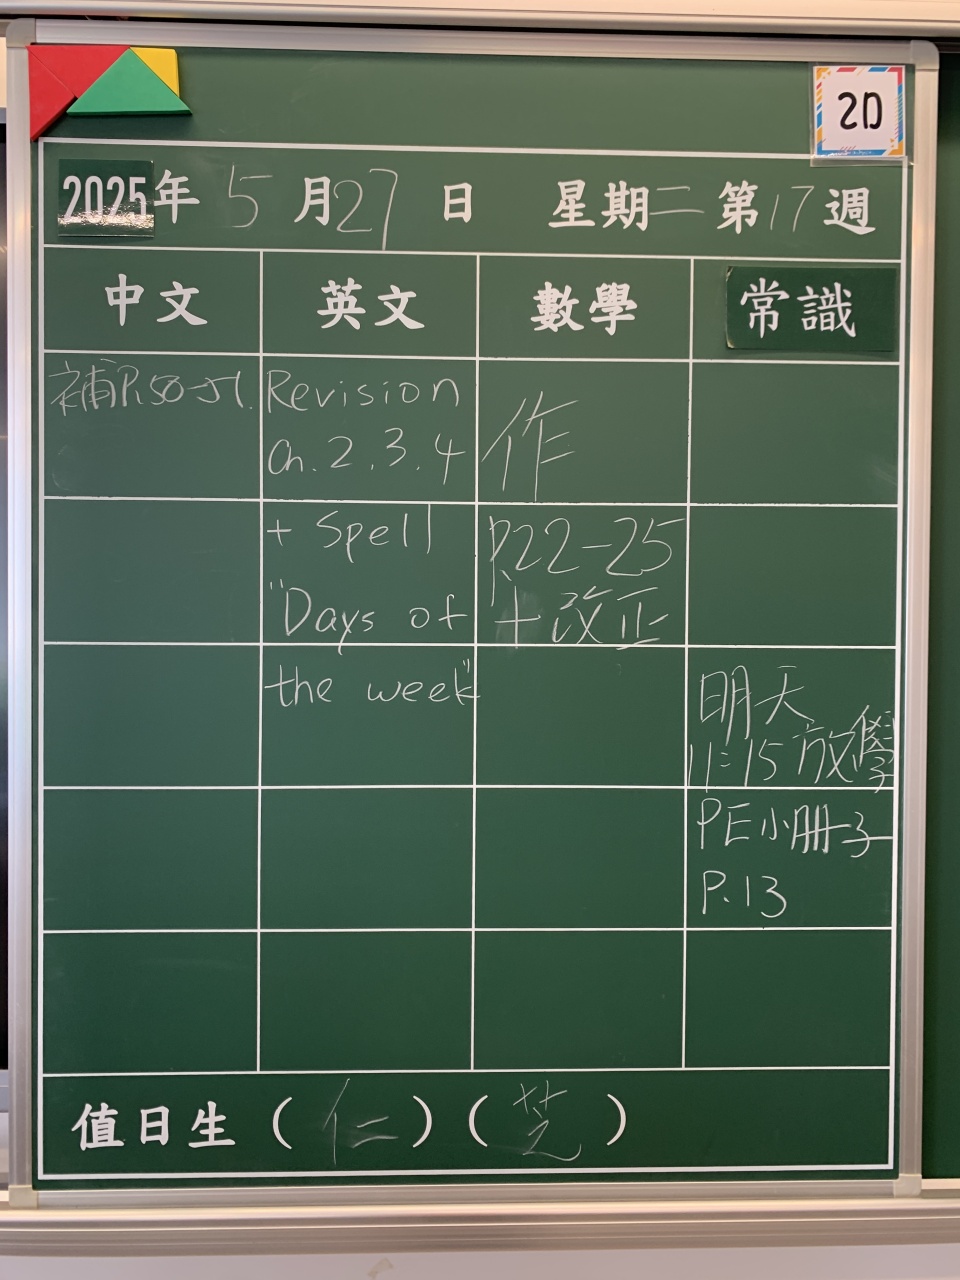 2D
2025年 5月27日 星期二 第17週
中文 英文 數學 常識
補P.50-51.
Revision
Ch. 2.3.4
+ Spell
"Days of
the week"
作
P.22-25
+改正
明天
11:15放學
PE小冊子
P.13
值日生 (仁) (芝)